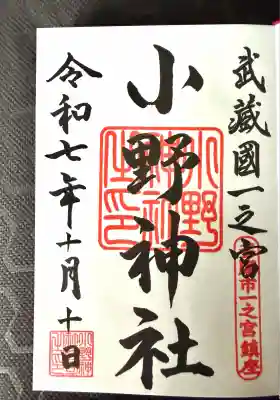 武藏國一之宮
市一之宮鎮座
小野神社
小野神社之印
令和七年十月十日